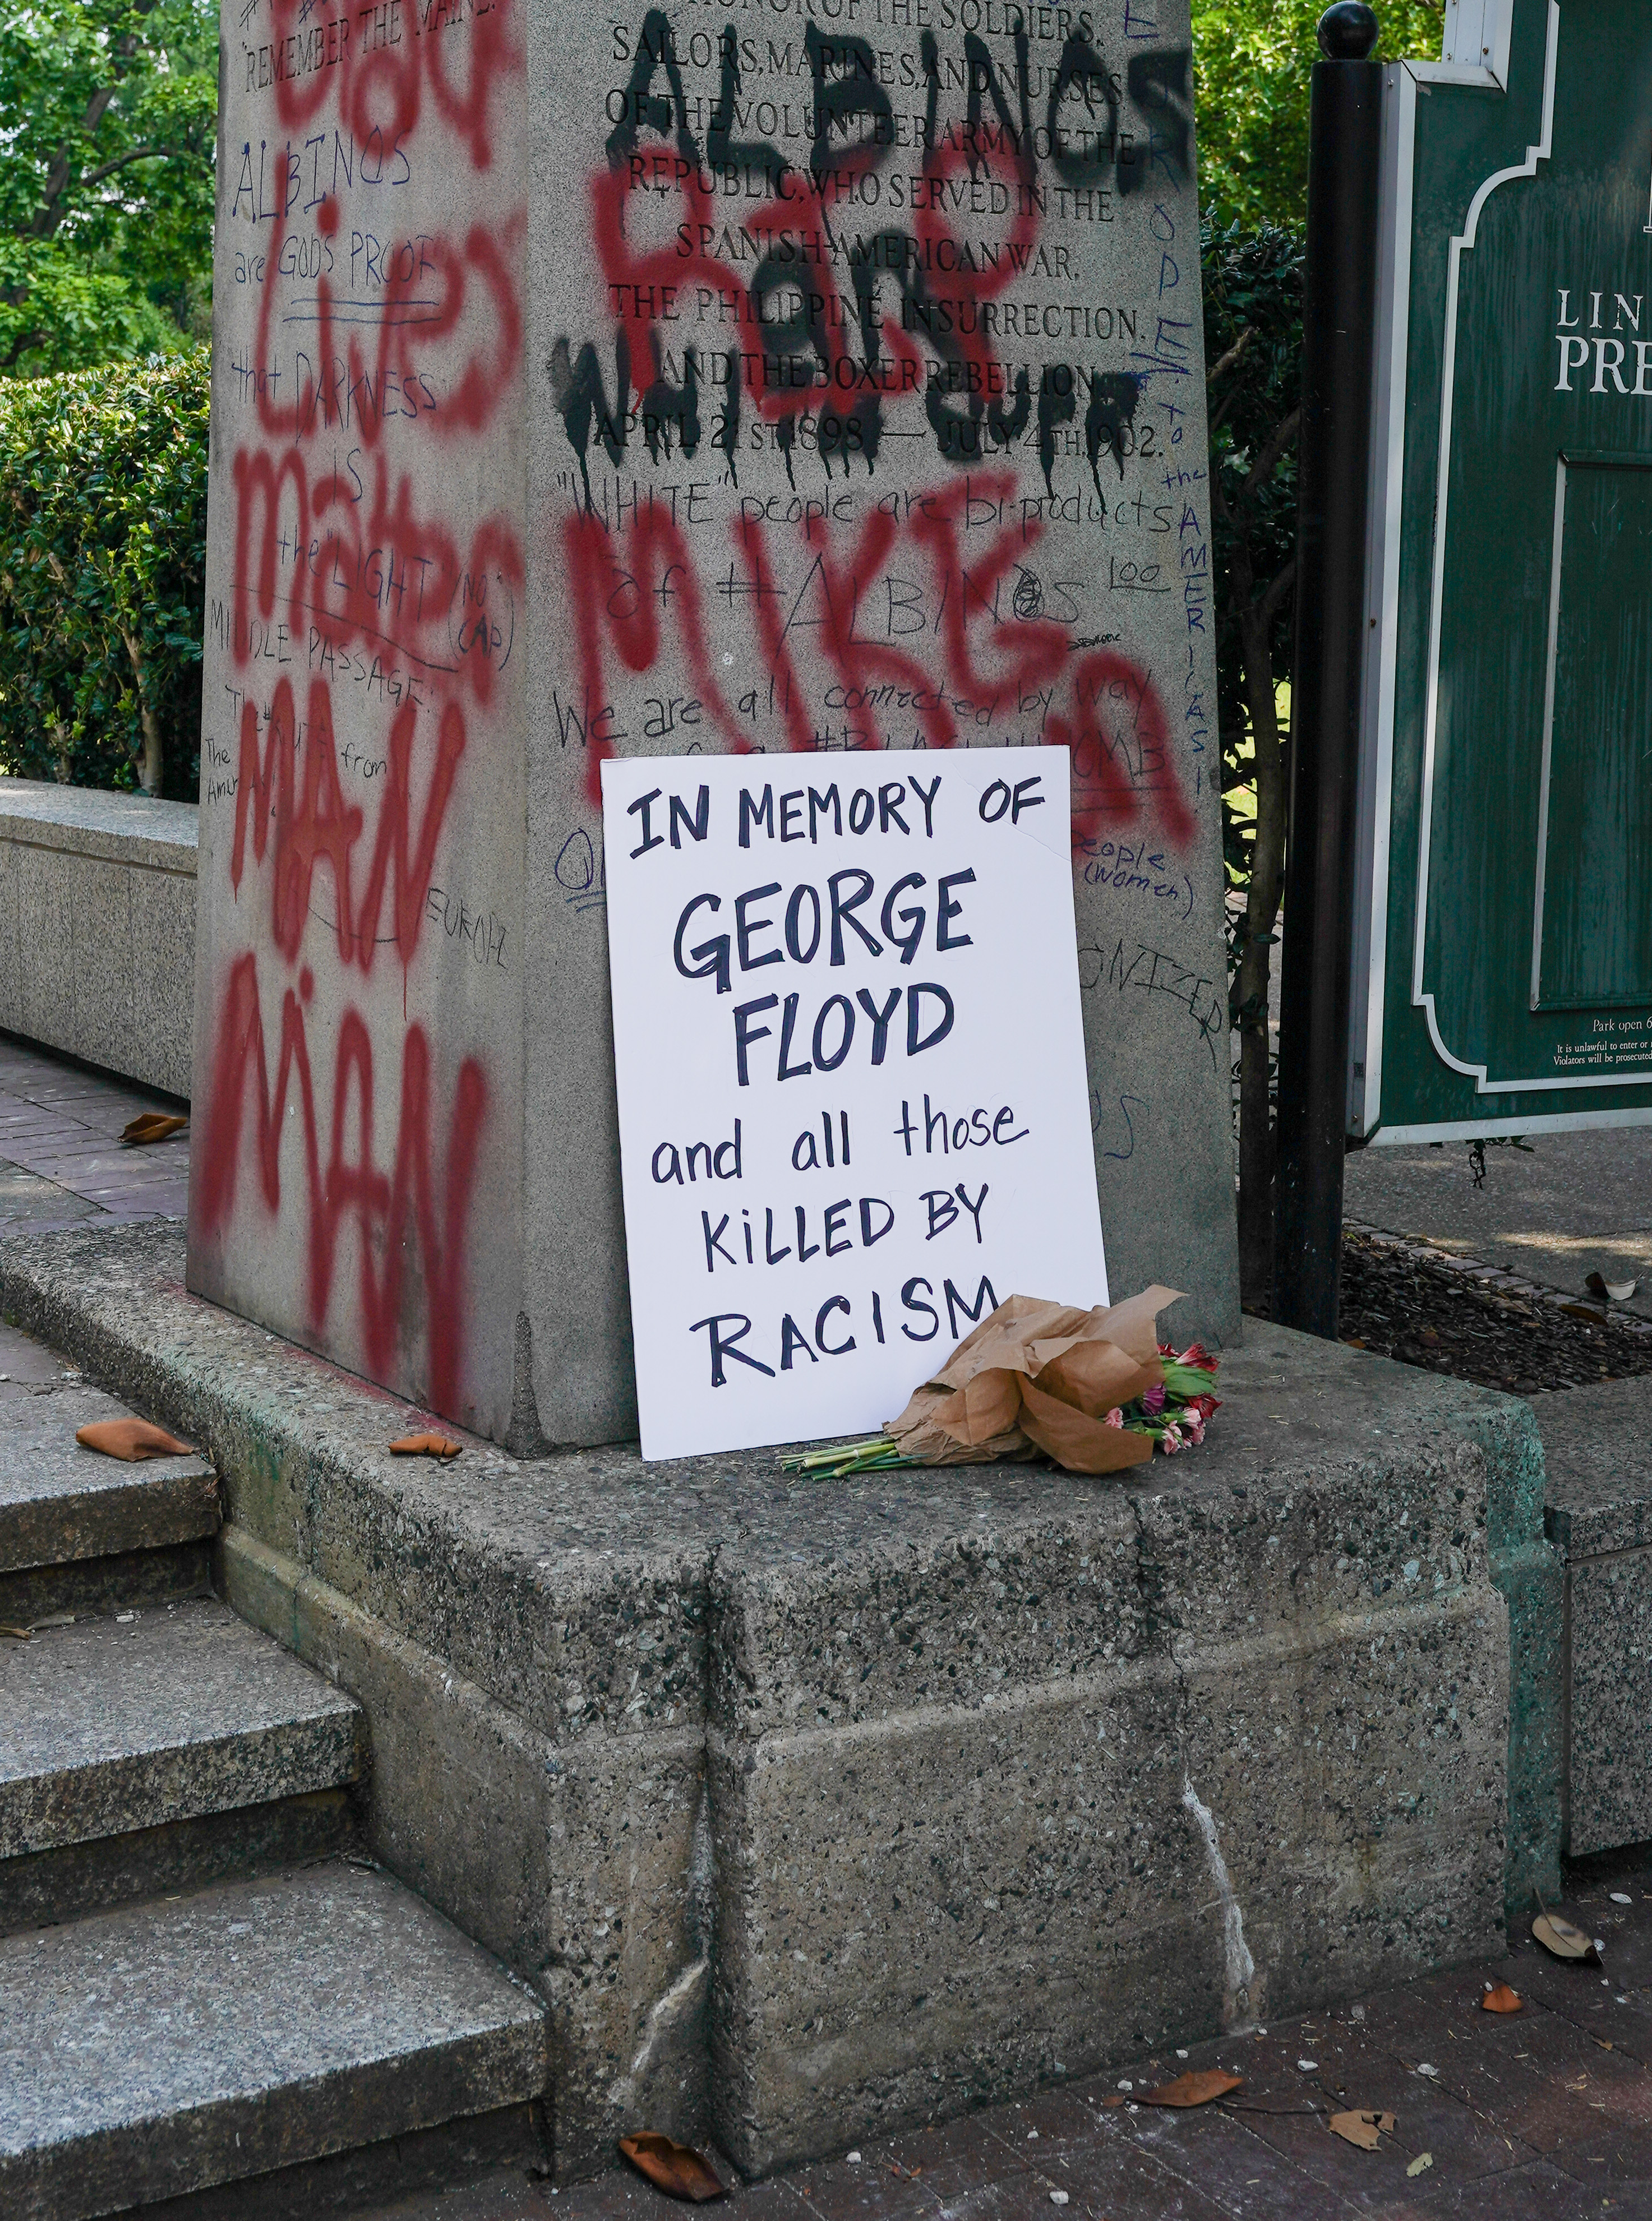 REMEMBER THE MAINE.
ALBINOS
are GODS PROOF
that DARKNESS
IS
the "LIGHT" (NO
CAP)
MIDDLE PASSAGE:
from
The
EUROPE
Lives
Matter
MAN
MAN
HONOR OF THE SOLDIERS,
SAILORS, MARINES, AND NURSES
OF THE VOLUNTEER ARMY OF THE
REPUBLIC, WHO SERVED IN THE
SPANISH-AMERICAN WAR,
THE PHILIPPINE INSURRECTION,
AND THE BOXER REBELLION,
APRIL 21ST, 1898 — JULY 4TH, 1902.
ALBINOS
"WHITE" people are bi-products
of #ALBINOS
MIKE
We are all connected by way
WOMB
people
(women)
ONIZER
to
the
AMERICAS
IN MEMORY OF
GEORGE
FLOYD
and all those
KiLLED BY
RACISM
LIN
PRE
Park open 6
It is unlawful to enter or
Violators will be prosecuted